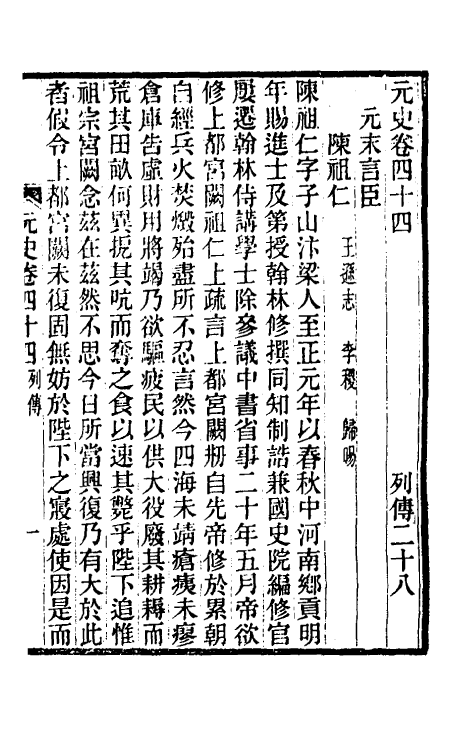 元史卷四十四　列傳二十八
元末言臣
陳祖仁　王遜志　李稷　歸暘
陳祖仁字子山汴梁人至正元年以春秋中河南鄉貢明
年賜進士及第授翰林修撰同知制誥兼國史院編修官
屢遷翰林侍講學士除參議中書省事二十年五月帝欲
修上都宮闕祖仁上疏言上都宮闕刱自先帝修於累朝
自經兵火焚燬殆盡所不忍言然今四海未靖瘡痍未瘳
倉庫告虛財用將竭乃欲驅疲民以供大役廢其耕耨而
荒其田畝何異扼其吭而奪之食以速其斃乎陛下追惟
祖宗宮闕念茲在茲然不思今日所當興復乃有大於此
者假令上都宮闕未復固無妨於陛下之寢處使因是而
元史卷四十四 列傳　一